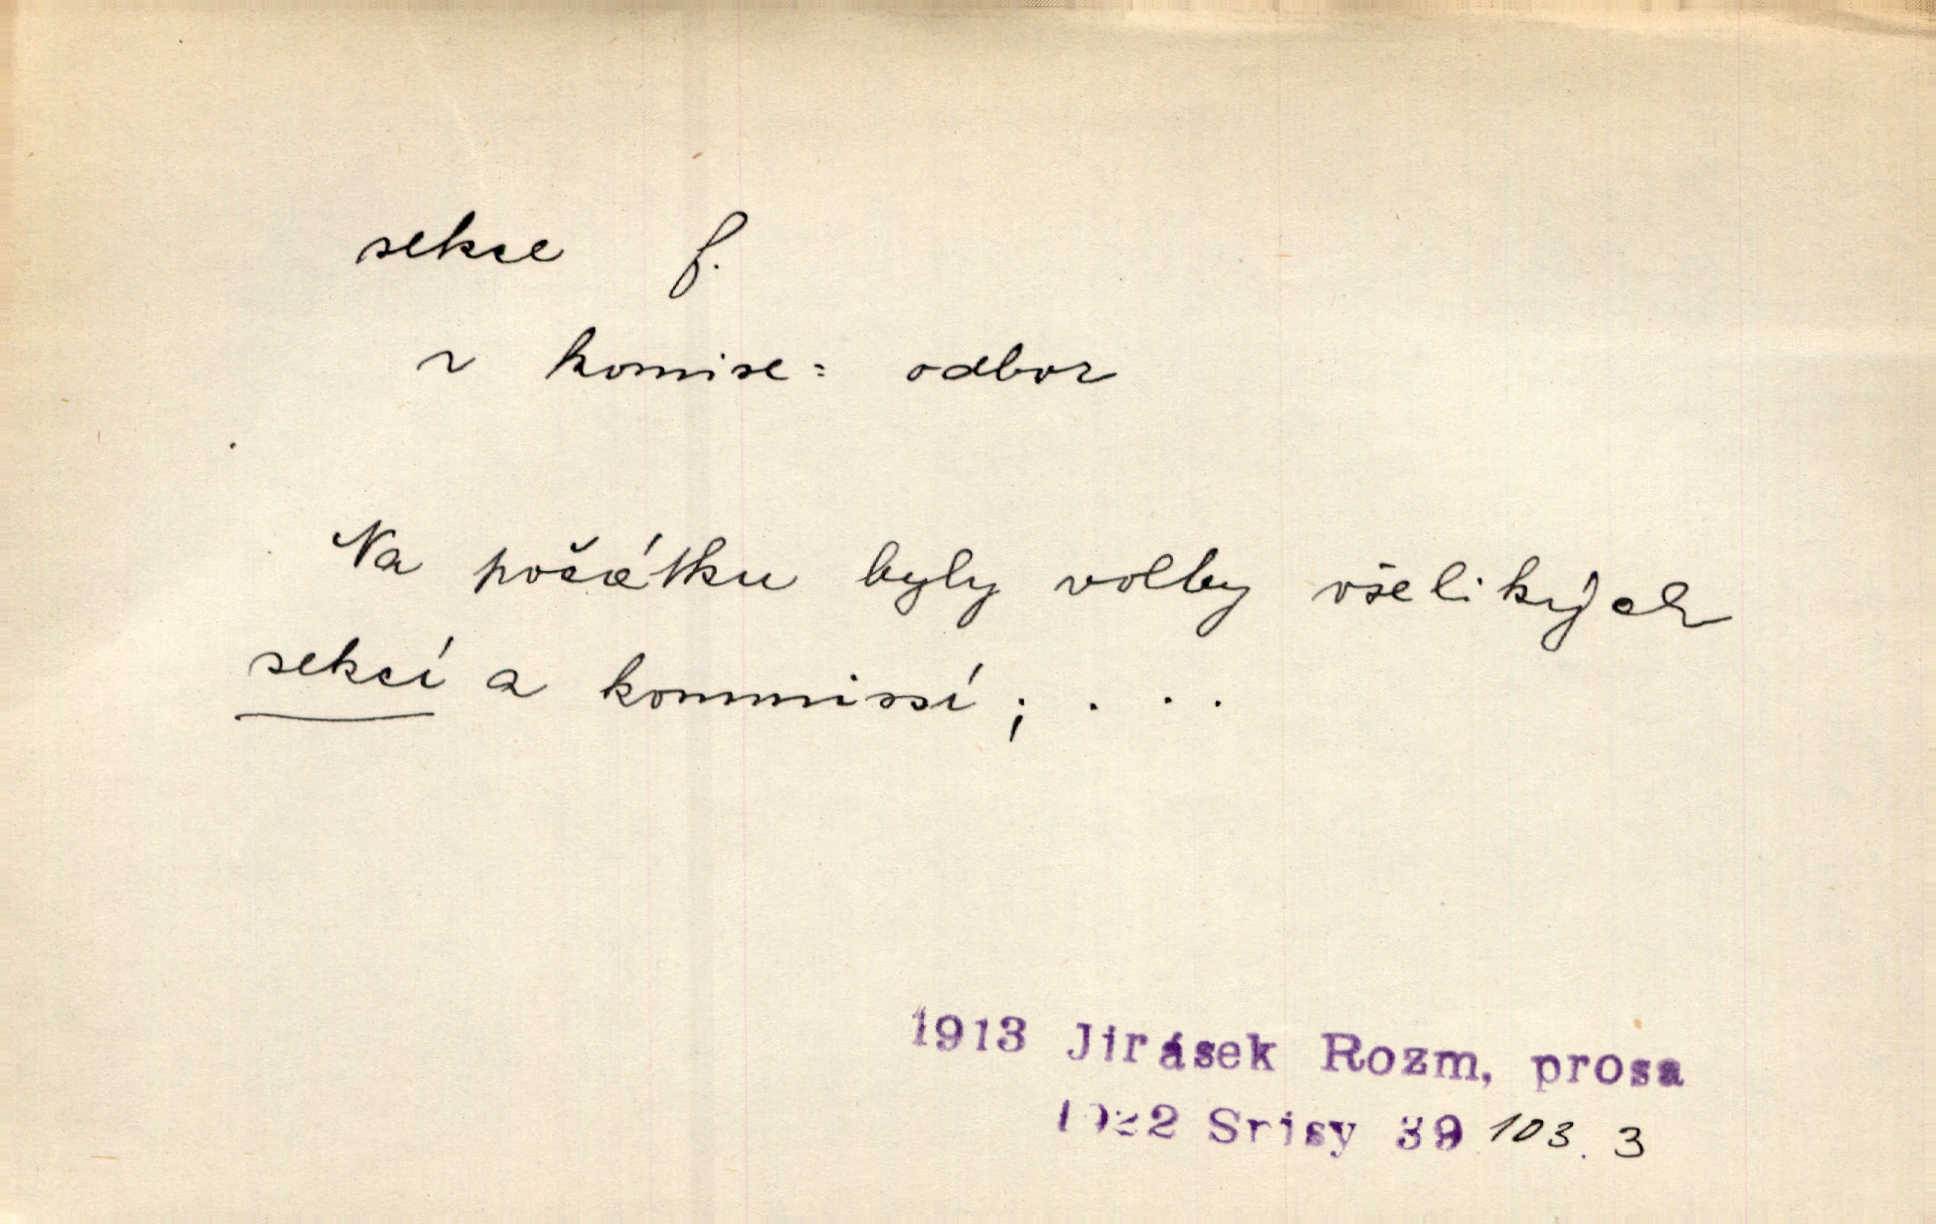 sekce f.
v komise: odbor
Na počátku byly volby všelikých
sekcí a kommissí; . . .
1913 Jirásek Rozm, prosa
1922 Srisy 39 103. 3